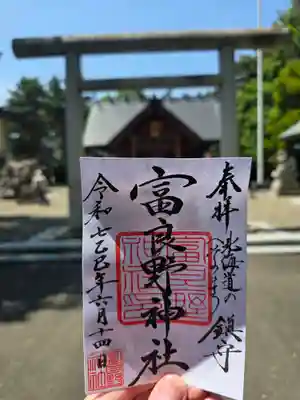 奉拝 北海道のへそのまち 鎮守
富良野神社
令和七乙巳年六月十四日